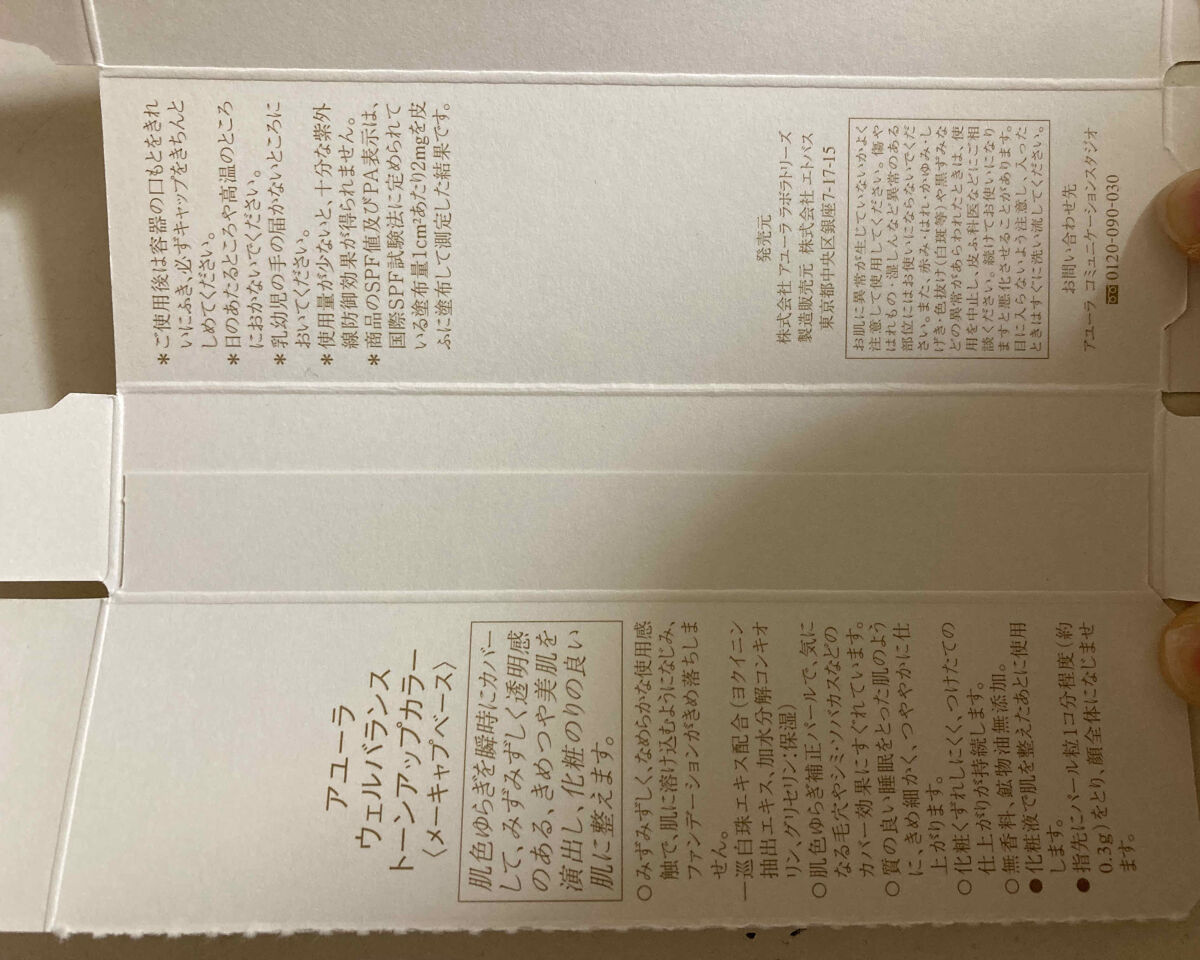 アユーラ
ウェルバランス
トーンアップカラー
〈メーキャップベース〉
肌色ゆらぎを瞬時にカバー
して、みずみずしく透明感
のある、きめつや美肌を
演出し、化粧のりの良い
肌に整えます。
○みずみずしく、なめらかな使用感
触で、肌に溶け込むようになじみ、
ファンデーションがきめ落ちしま
せん。
一巡白珠エキス配合(ヨクイニン
抽出エキス、加水分解コンキオ
リン、グリセリン:保湿)
○肌色ゆらぎ補正パールで、気に
なる毛穴やシミ・ソバカスなどの
カバー効果にすぐれています。
○質の良い睡眠をとった肌のよう
に、きめ細かく、つややかに仕
上がります。
○化粧くずれしにくく、つけたての
仕上がりが持続します。
○無香料、鉱物油無添加。
●化粧液で肌を整えたあとに使用
します。
●指先にパール粒1コ分程度(約
0.3g)をとり、顔全体になじませ
ます。
*ご使用後は容器の口もとをきれ
いにふき、必ずキャップをきちんと
しめてください。
*日のあたるところや高温のところ
におかないでください。
*乳幼児の手の届かないところに
おいてください。
*使用量が少ないと、十分な紫外
線防御効果が得られません。
*商品のSPF値及びPA表示は、
国際SPF試験法に定められて
いる塗布量1cm²あたり2mgを皮
ふに塗布して測定した結果です。
発売元
株式会社 アユーラ ラボラトリーズ
製造販売元 株式会社 エトバス
東京都中央区銀座7-17-15
お肌に異常が生じていないかよく
注意して使用してください。傷や
はれもの・湿しんなど異常のある
部位にはお使いにならないでくだ
さい。また、赤み・はれ・かゆみ・し
げき・色抜け(白斑等)や黒ずみな
どの異常があらわれたときは、使
用を中止し、皮ふ科医などにご相
談ください。続けてお使いになり
ますと悪化させることがあります。
目に入らないよう注意し、入った
ときはすぐに洗い流してください。
お問い合わせ先
アユーラ コミュニケーションスタジオ
0120-090-030